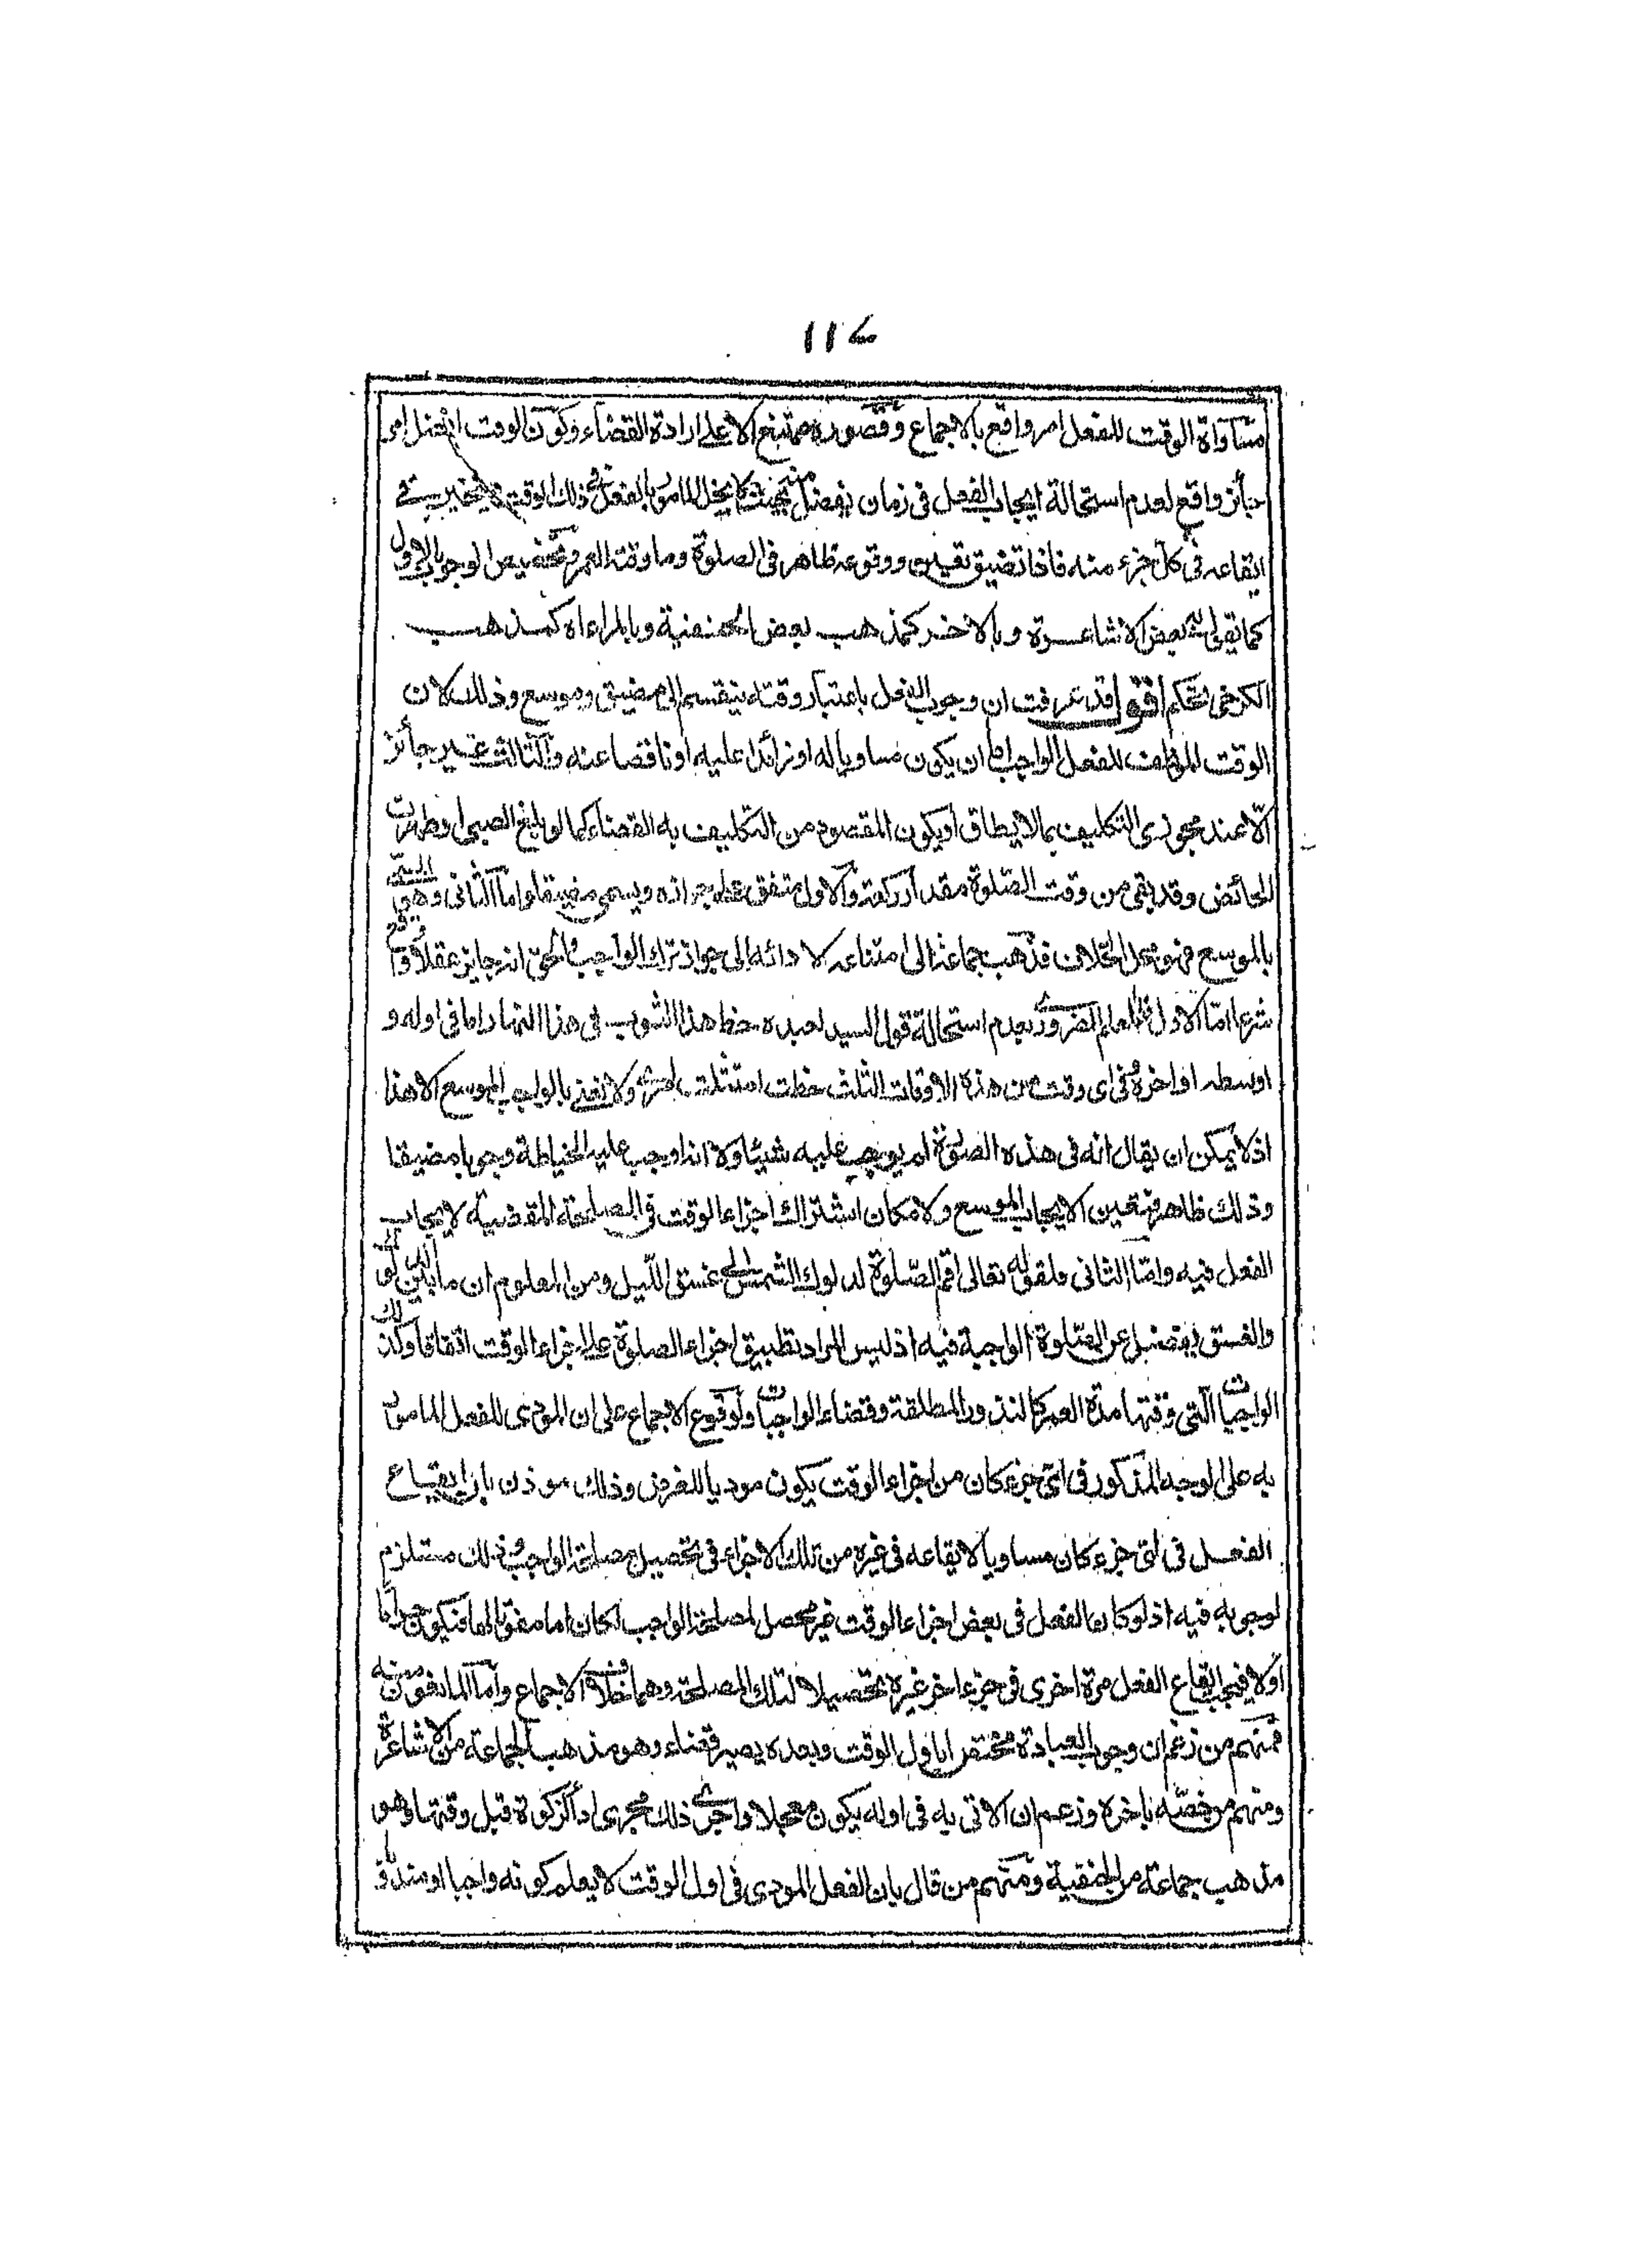 ١١٧
مساواة الوقت للفعل امر واقع بالاجماع وقصوره ممتنع الا على ارادة القضاء وكون الوقت افضل امر
جائز واقع لعدم استحالة ايجاب الفعل في زمان يفضل منه بحيث لا يخل المامور بالفعل في ذلك الوقت في
ايقاعه في كل جزء منه فاذا تضيق تعين ووقوعه ظاهر في الصلوة وما وقته العمر وتخصيص الوجوب بالاول
كما يقوله بعض الاشاعرة وبالاخر كمذهب بعض الحنفية وبالمراعاه كمذهب
الكرخي تحكم اقول قد عرفت ان وجوب الفعل باعتبار وقته ينقسم الى مضيق وموسع وذلك لان
الوقت للفعل الواجب اما ان يكون مساويا له او زائدا عليه او ناقصا عنه والثالث غير جائز
الا عند مجوزي التكليف بما لا يطاق او يكون المقصود من التكليف به القضاء كما لو بلغ الصبي او طهرت
الحائض وقد بقي من وقت الصلوة مقدار ركعة والاول متفق على جوازه ويسمى مضيقا واما الثاني وهو المسمى
بالموسع فهو محل الخلاف فذهب جماعة الى امتناعه لادائه الى جواز ترك الواجب والحق انه جايز عقلا وواقع
شرعا اما الاول فللعلم الضروري بعدم استحالة قول السيد لعبده خط هذا الثوب في هذا النهار اما في اوله و
اوسطه او اخره وفي اى وقت من هذه الاوقات الثلث خطت امتثلت امرى ولا نعنى بالواجب الموسع الا هذا
اذ لا يمكن ان يقال انه في هذه الصورة لم يوجب عليه شيئا ولا انه اوجب عليه الخياطة وجوبا مضيقا
وذلك ظاهر فتعين الايجاب الموسع ولامكان اشتراك اجزاء الوقت في المصلحة المقتضية لايجاب
الفعل فيه واما الثاني فلقوله تعالى اقم الصلوة لدلوك الشمس الى غسق الليل ومن المعلوم ان ما بين الدلوك
والغسق يفضل عن الصلوة الواجبة فيه اذ ليس المراد تطبيق اجزاء الصلوة على اجزاء الوقت اتفاقا وكذلك
الواجبات التي وقتها مدة العمر كالنذور المطلقة وقضاء الواجبات ولوقوع الاجماع على ان المودى للفعل المامور
به على الوجه المذكور في اى جزء كان من اجزاء الوقت يكون موديا للفرض وذلك موذن بان ايقاع
الفعل في اى جزء كان مساويا لايقاعه في غيره من تلك الاجزاء في تحصيل مصلحة الواجب وذلك مستلزم
لوجوبه فيه اذ لو كان الفعل في بعض اجزاء الوقت غير محصل لمصلحة الواجب لكان اما مفوتا لها فيكون حراما
اولا فيجب ايقاع الفعل مرة اخرى في جزء اخر غيره تحصيلا لتلك المصلحة وهما خلاف الاجماع واما المانعون منه
فمنهم من زعم ان وجوب العبادة مختص باول الوقت وبعده يصير قضاء وهو مذهب الجماعة من الاشاعرة
ومنهم من خصه باخره وزعم ان الاتي به في اوله يكون معجلا واجرى ذلك مجرى اداء الزكوة قبل وقتها وهو
مذهب جماعة من الحنفية ومنهم من قال بان الفعل المودى في اول الوقت لا يعلم كونه واجبا او مندوبا